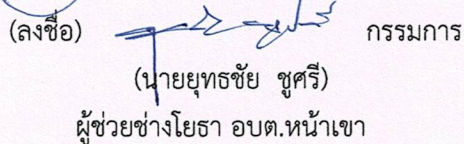 (ลงชื่อ) กรรมการ
(นายยุทธชัย ชูศรี)
ผู้ช่วยช่างโยธา อบต.หน้าเขา